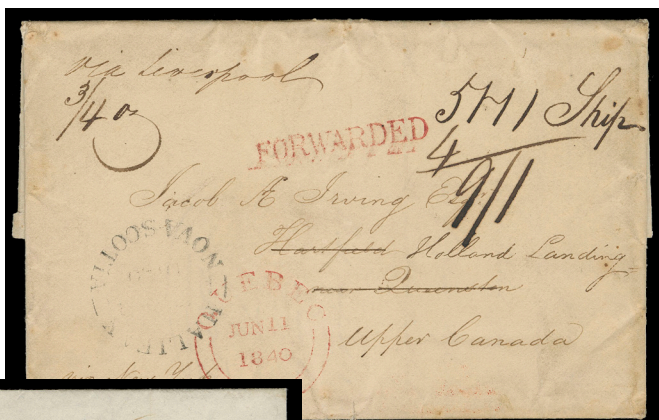 via Liverpool
3/4 oz
5/11 Ship
4
9/1
FORWARDED
Jacob Æ Irving Esqr
Hartfield Holland Landing
near Queenston
Upper Canada
NOVA-SCOTIA
HALIFAX
QUEBEC
JUN 11
1840
via New York